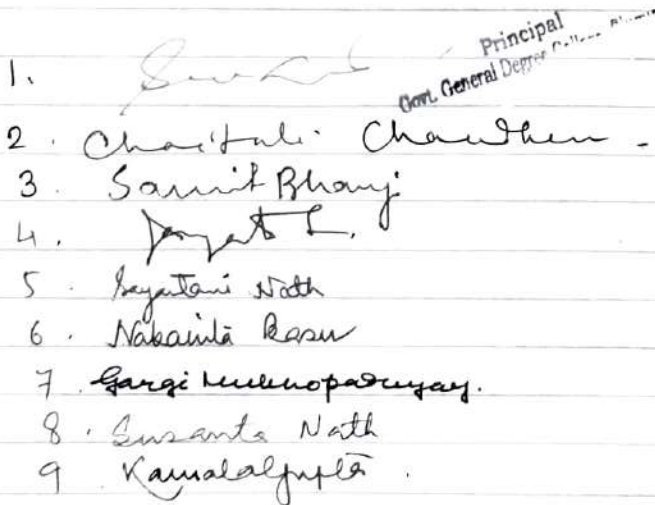 Principal
Govt. General Degree College
1.
2. Chaitali Chaudhuri
3. Samit Bhanji
4.
5. Sayantani Nath
6. Nabamita Basu
7. Gargi Mukhopadhyay.
8. Susanta Nath
9 Kamalalgupta.